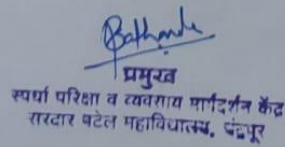 प्रमुख
स्पर्धा परिक्षा व व्यवसाय मार्गदर्शन केंद्र
सरदार पटेल महाविद्यालय, चंद्रपूर